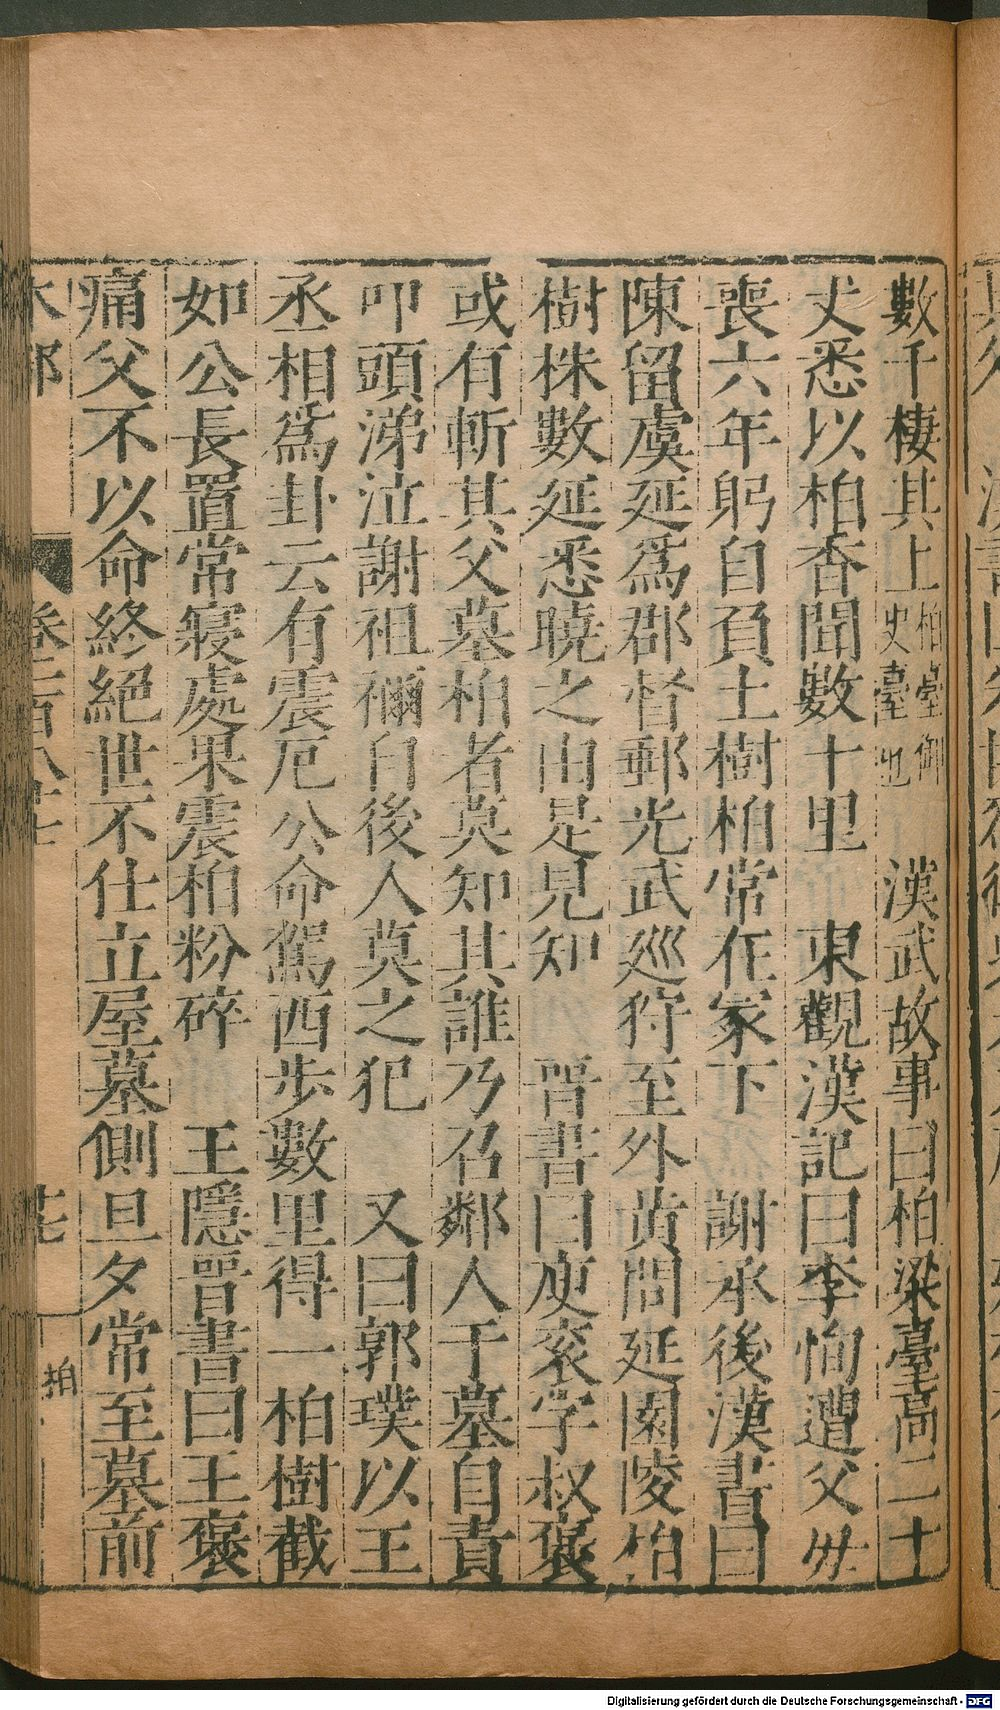 數千棲其上柏臺御史臺也　漢武故事曰柏梁臺高二十
丈悉以柏香聞數十里　東觀漢記曰李恂遭父毋
喪六年躬自負土樹柏常在冢下　謝承後漢書曰
陳留虞延爲郡督郵光武巡狩至外黄問延園陵柏
樹株數延悉曉之由是見知　晉書曰庾衮字叔褒
或有斬其父墓柏者莫知其誰乃召鄰人于墓自責
叩頭涕泣謝祖禰自後人莫之犯　又曰郭璞以王
丞相爲卦云有震厄公命駕西步數里得一柏樹截
如公長置常寢處果震柏粉碎　王隱晉書曰王褒
痛父不以命終絕世不仕立屋墓側旦夕常至墓前
木部　卷二百八十七　廿七　柏
Digitalisierung gefördert durch die Deutsche Forschungsgemeinschaft - DFG